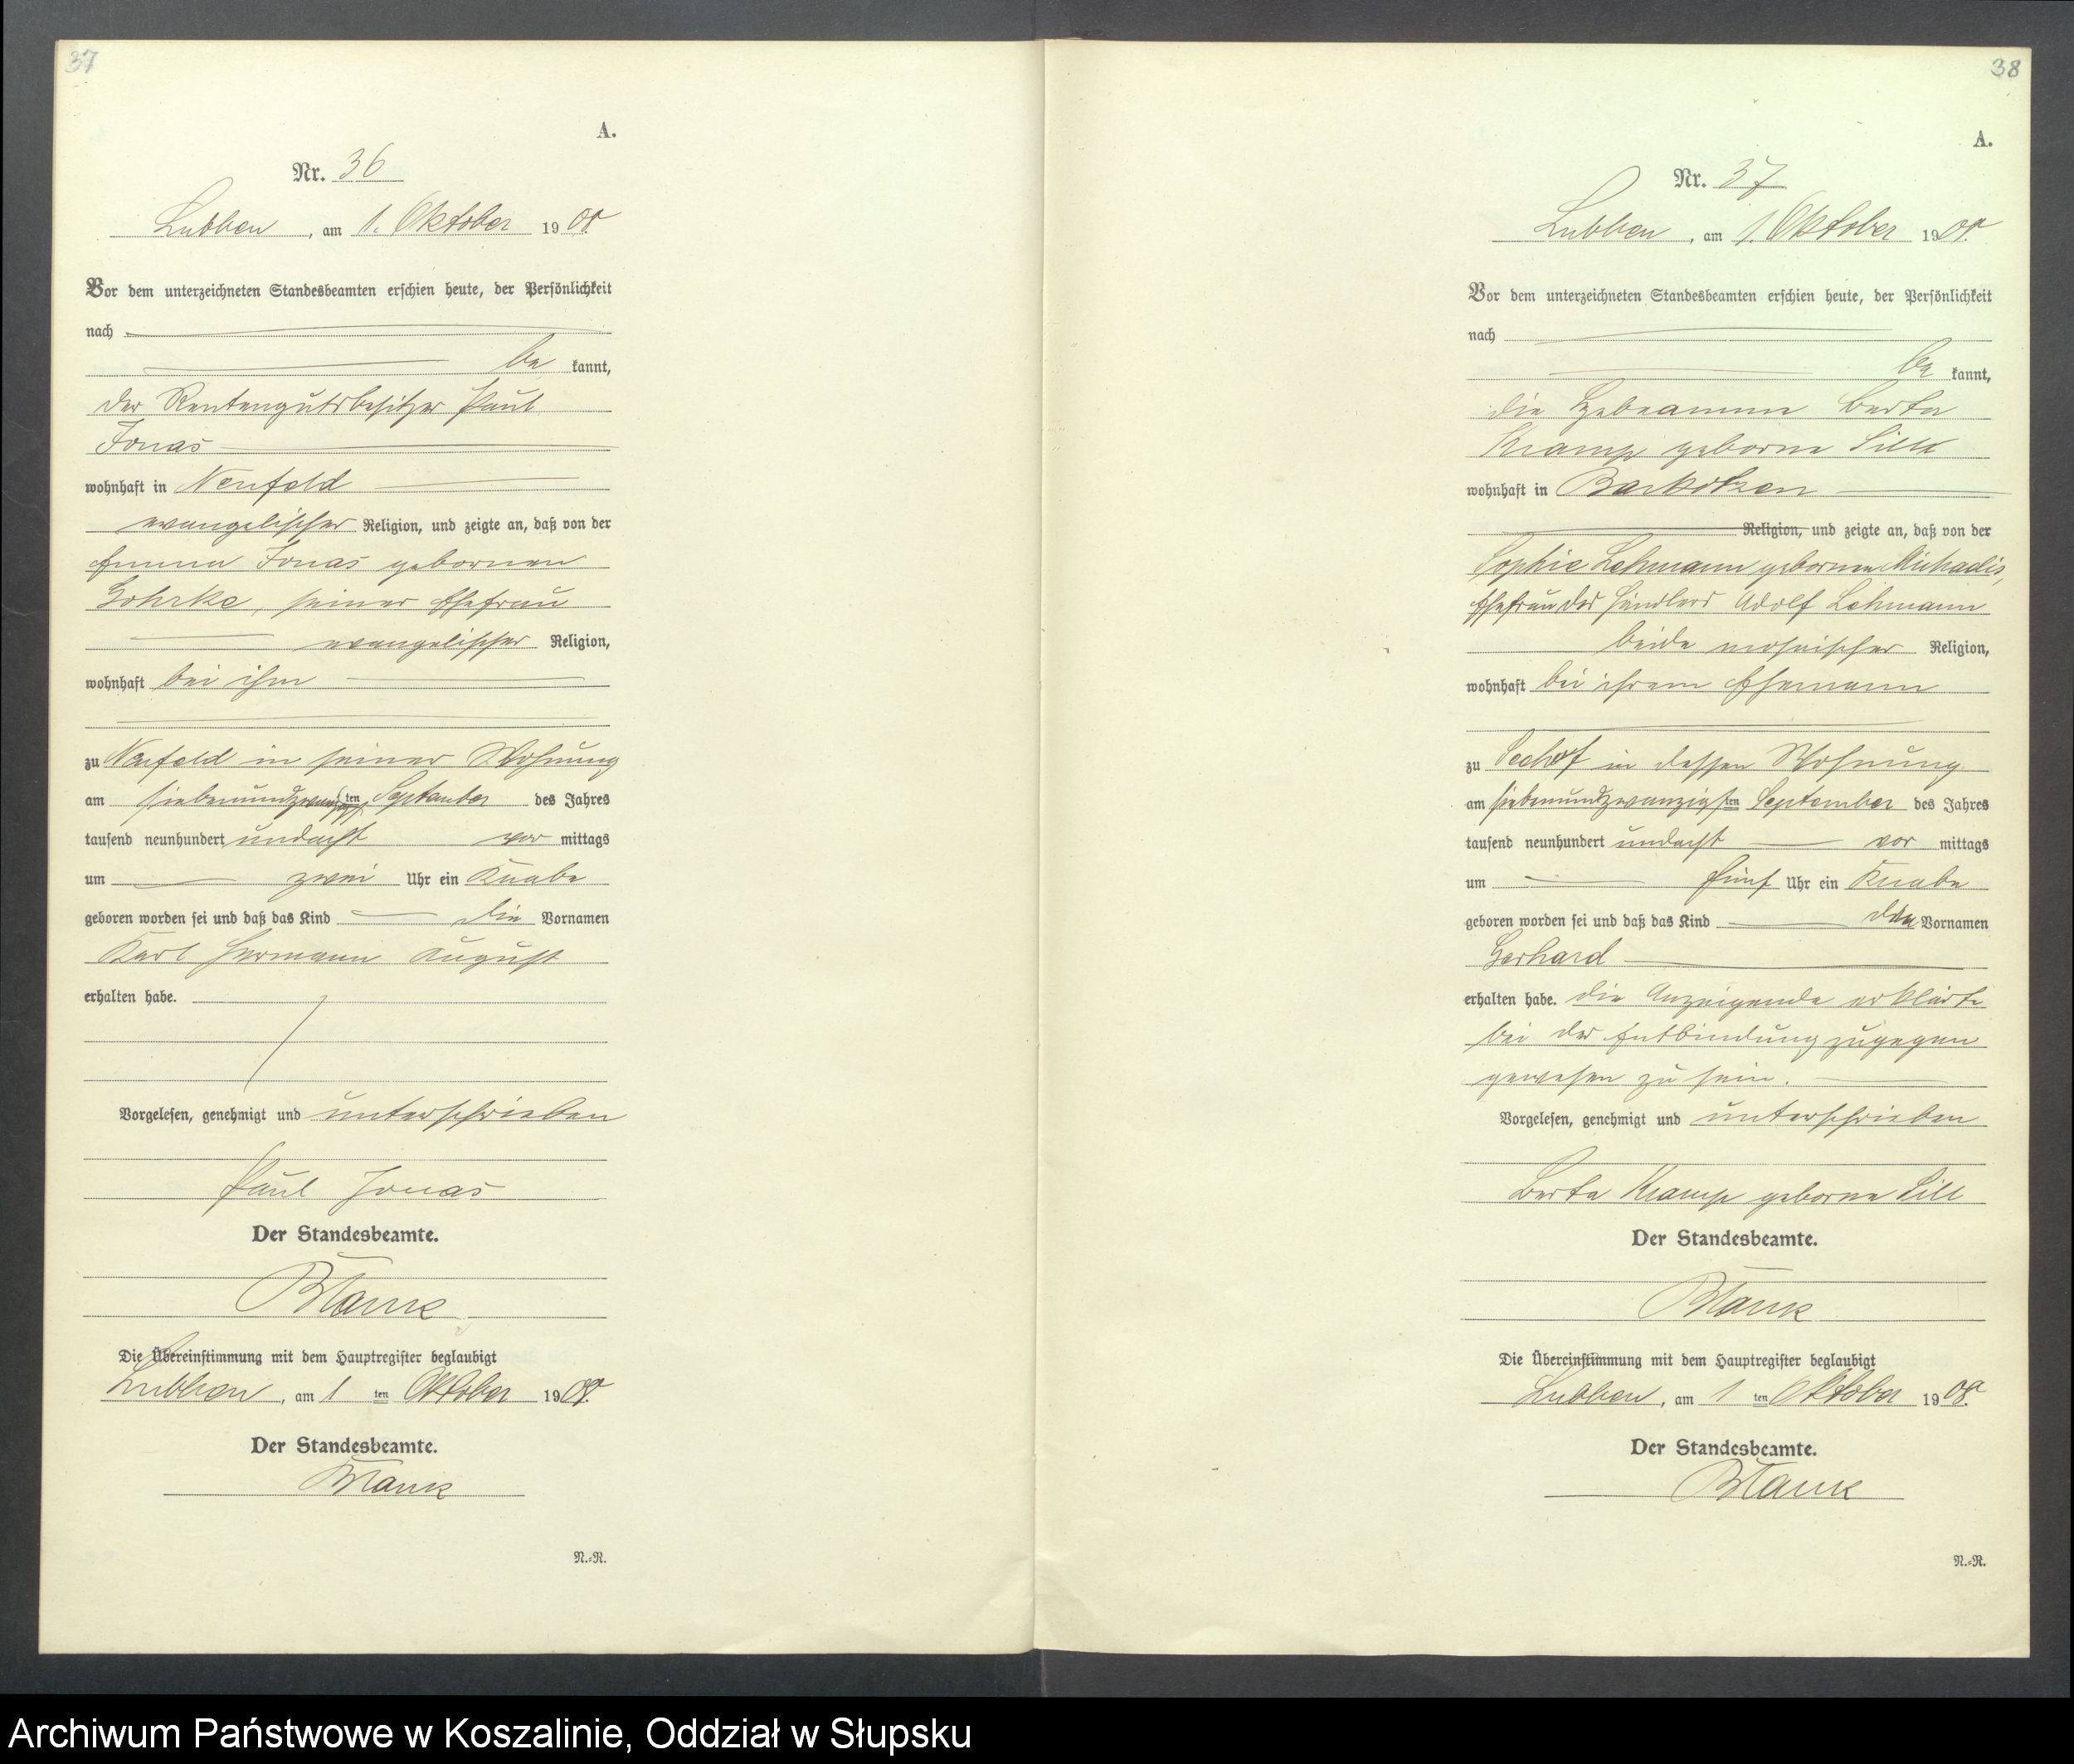 37
A.
Nr. 36
Lubben, am 1. Oktober 1908.
Vor dem unterzeichneten Standesbeamten erschien heute, der Persönlichkeit
nach
be kannt,
der Rentengutsbesitzer Paul
Jonas
wohnhaft in Neufeld
evangelischer Religion, und zeigte an, daß von der
Emma Jonas gebornen
Gohrke, seiner Ehefrau
evangelischer Religion,
wohnhaft bei ihm
zu Neufeld in seiner Wohnung
am siebenundzwanzigsten September des Jahres
tausend neunhundert undacht vor mittags
um zwei Uhr ein Knabe
geboren worden sei und daß das Kind die Vornamen
Karl Hermann August
erhalten habe.
Vorgelesen, genehmigt und unterschrieben
Paul Jonas
Der Standesbeamte.
Die Übereinstimmung mit dem Hauptregister beglaubigt
Lubben, am 1 ten Oktober 1908.
Der Standesbeamte.
N.-R.
38
A.
Nr. 37
Lubben, am 1. Oktober 1908.
Vor dem unterzeichneten Standesbeamten erschien heute, der Persönlichkeit
nach
be kannt,
die Hebeamme Berta
Kramp geborne Sill
wohnhaft in Barkotzen
Religion, und zeigte an, daß von der
Sophie Lehmann gebornen Michaelis,
Ehefrau des Händlers Adolf Lehmann
beide mosaischer Religion,
wohnhaft bei ihrem Ehemann
zu Seehof in dessen Wohnung
am siebenundzwanzigsten September des Jahres
tausend neunhundert undacht vor mittags
um fünf Uhr ein Knabe
geboren worden sei und daß das Kind den Vornamen
Gerhard
erhalten habe. Die Anzeigende erklärte
bei der Entbindung zugegen
gewesen zu sein.
Vorgelesen, genehmigt und unterschrieben
Berta Kramp geborne Sill
Der Standesbeamte.
Die Übereinstimmung mit dem Hauptregister beglaubigt
Lubben, am 1 ten Oktober 1908.
Der Standesbeamte.
N.-R.
Archiwum Państwowe w Koszalinie, Oddział w Słupsku